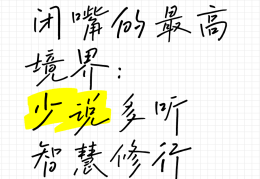 闭嘴的最高
境界：
少说多听
智慧修行